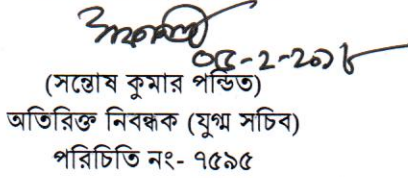 ০৫-২-২০১৮
(সন্তোষ কুমার পন্ডিত)
অতিরিক্ত নিবন্ধক (যুগ্ম সচিব)
পরিচিতি নং- ৭৫৯৫